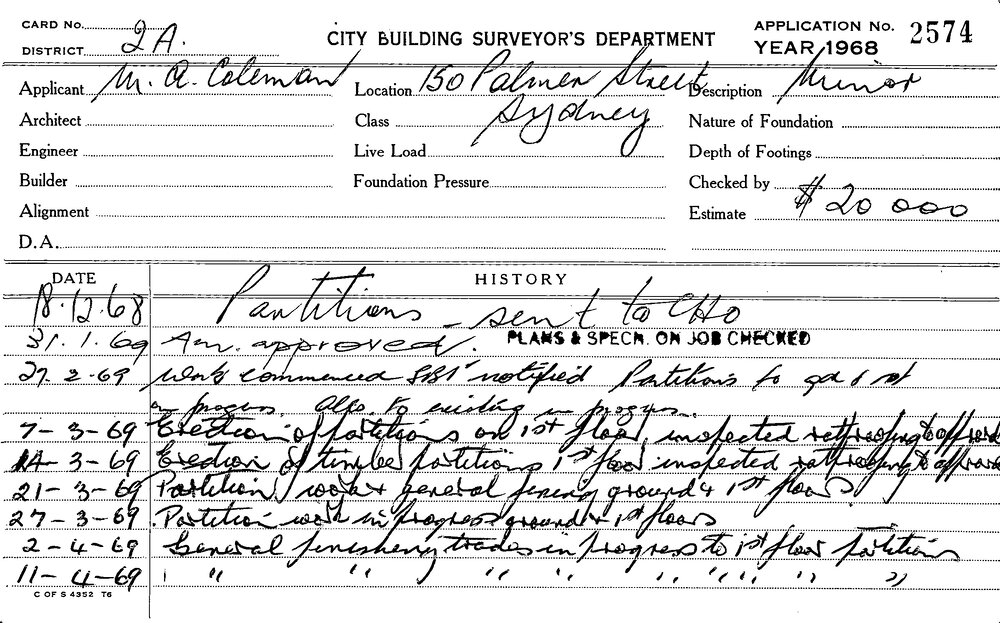 CARD No.
DISTRICT 2A.
CITY BUILDING SURVEYOR'S DEPARTMENT
APPLICATION No. 2574
YEAR 1968
Applicant M. A. Coleman
Location 150 Palmer Street
Description Minor
Architect
Class Sydney
Nature of Foundation
Engineer
Live Load
Depth of Footings
Builder
Foundation Pressure
Checked by
Alignment
Estimate $20 000
D.A.
DATE HISTORY
18.12.68 Partitions - sent to CHO
31.1.69 Am. approved. PLANS & SPECN. ON JOB CHECKED
27.2.69 Work commenced SBI notified Partitions to gd & 1st
in progress. Also to existing in progress.
7-3-69 Erection of partitions on 1st floor, inspected ratproofing to
14-3-69 Erection of timber partitions 1st floor inspected ratproofing to
21-3-69 Partition work & general fixing ground & 1st floors
27-3-69 Partition work in progress ground & 1st floors
2-4-69 General finishing trades in progress to 1st floor partitions
11-4-69 " " " " " " " " " "
C OF S 4352 T6